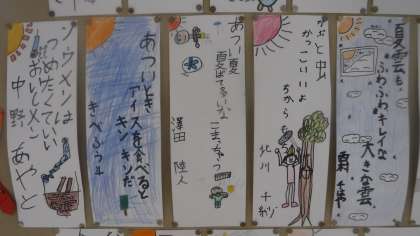 夏雲も
ふわふわキレイな
大きな雲
かぶと虫
かっこいいよ
ちから
北川 千紗
あつい夏
夏ばて多いな
こまっちゃう
澤田 陸人
あついとき
アイスを食べると
キンキンだ
ソウメンは
つめたくていい
おいしいメン
中野 あやと